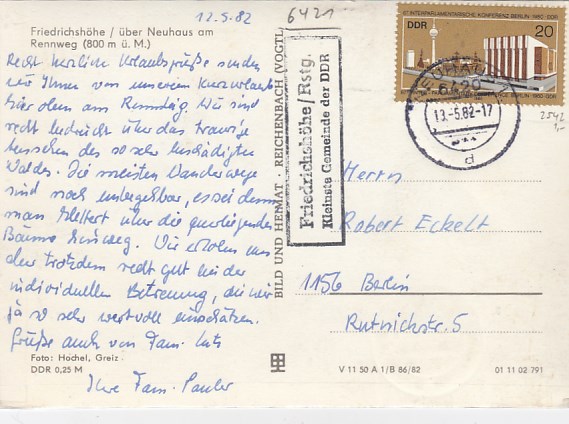 12.5.82
6421
Friedrichshöhe / über Neuhaus am
Rennweg (800 m ü. M.)
Recht herzliche Urlaubsgrüße senden
wir Ihnen von unserem Kurzurlaub
hier oben am Rennsteig. Wir sind
recht bedrückt über das traurige
Aussehen des so sehr geschädigten
Waldes. Die meisten Wanderwege
sind noch unbegehbar, es sei denn
man klettert über die querliegenden
Bäume hinweg. Wir erholen uns
aber trotzdem recht gut bei der
individuellen Betreuung, die wir
ja so sehr wertvoll einschätzen.
Grüße auch von Fam. Lutz
Ihre Fam.
Foto: Hochel, Greiz
DDR 0,25 M
BILD UND HEIMAT · REICHENBACH (VOGTL
Friedrichshöhe/Rstg.
Kleinste Gemeinde der DDR
67. INTERPARLAMENTARISCHE KONFERENZ BERLIN 1980 · DDR
DDR
20
13.-5.82-17
d
2542
Herrn
Robert Eckelt
1156 Berlin
Rutnickstr. 5
V 11 50 A 1/B 86/82
01 11 02 791